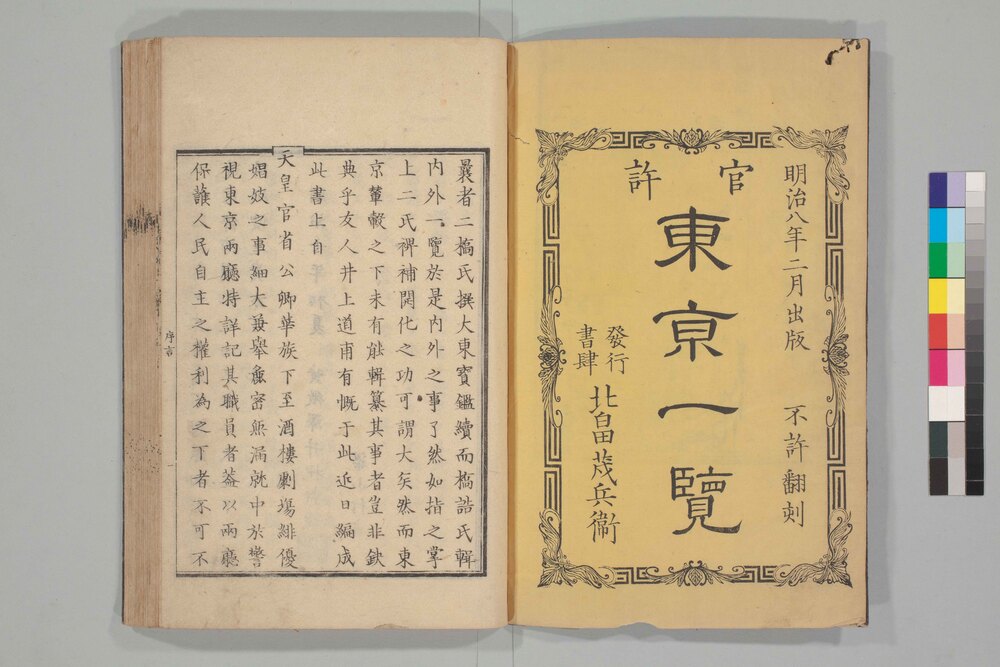 明治八年二月出版　不許翻刻
官許
東京一覽
發行
書肆
北畠茂兵衞
曩者二橋氏撰大東寶鑑續而橋詰氏輯
内外一覽於是内外之事了然如指之掌
上二氏裨補開化之功可謂大矣然而東
京輦轂之下未有能輯纂其事者豈非缺
典乎友人井上道甫有慨于此近日編成
此書上自
天皇官省公卿華族下至酒樓劇塲緋優
娼妓之事細大兼擧靡密無漏就中於警
視東京兩廳特詳記其職員者蓋以兩廳
保護人民自主之權利為之下者不可不
序言